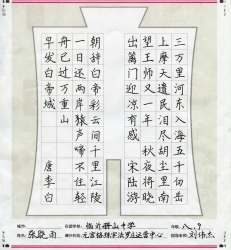 三万里河东入海五千仞岳
上摩天遗民泪尽胡尘里南
望王师又一年 秋夜将晓
出篱门迎凉有感 宋 陆游
朝辞白帝彩云间千里江陵
一日还两岸猿声啼不住轻
舟已过万重山
早发白帝城 唐 李白
张晓雨
临沂册山中学
八、9